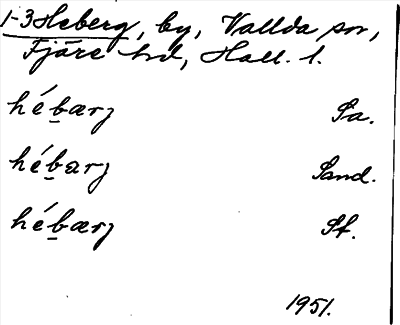 1-3 Heberg, by, Vallda sn,
Fjäre hd, Hall. l.
hébærj Sa.
hébarj Sand.
hébærj St.
1951.